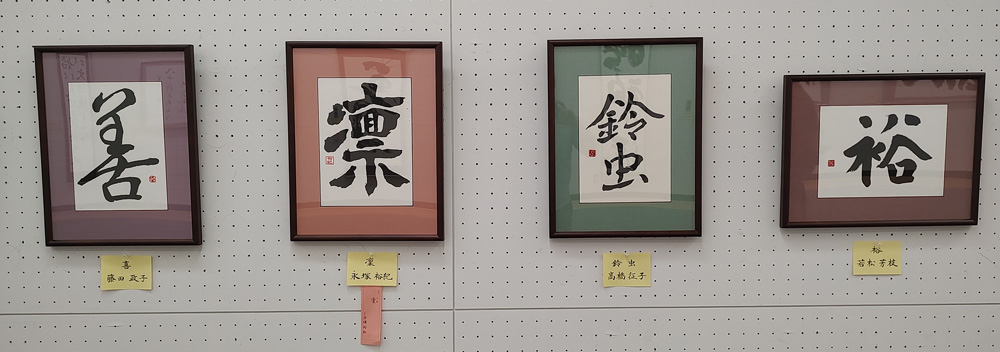 善
凛
鈴
虫
裕
喜
藤田 政子
凛
永塚 裕紀
鈴 虫
高橋 征子
裕
若松 芳枝